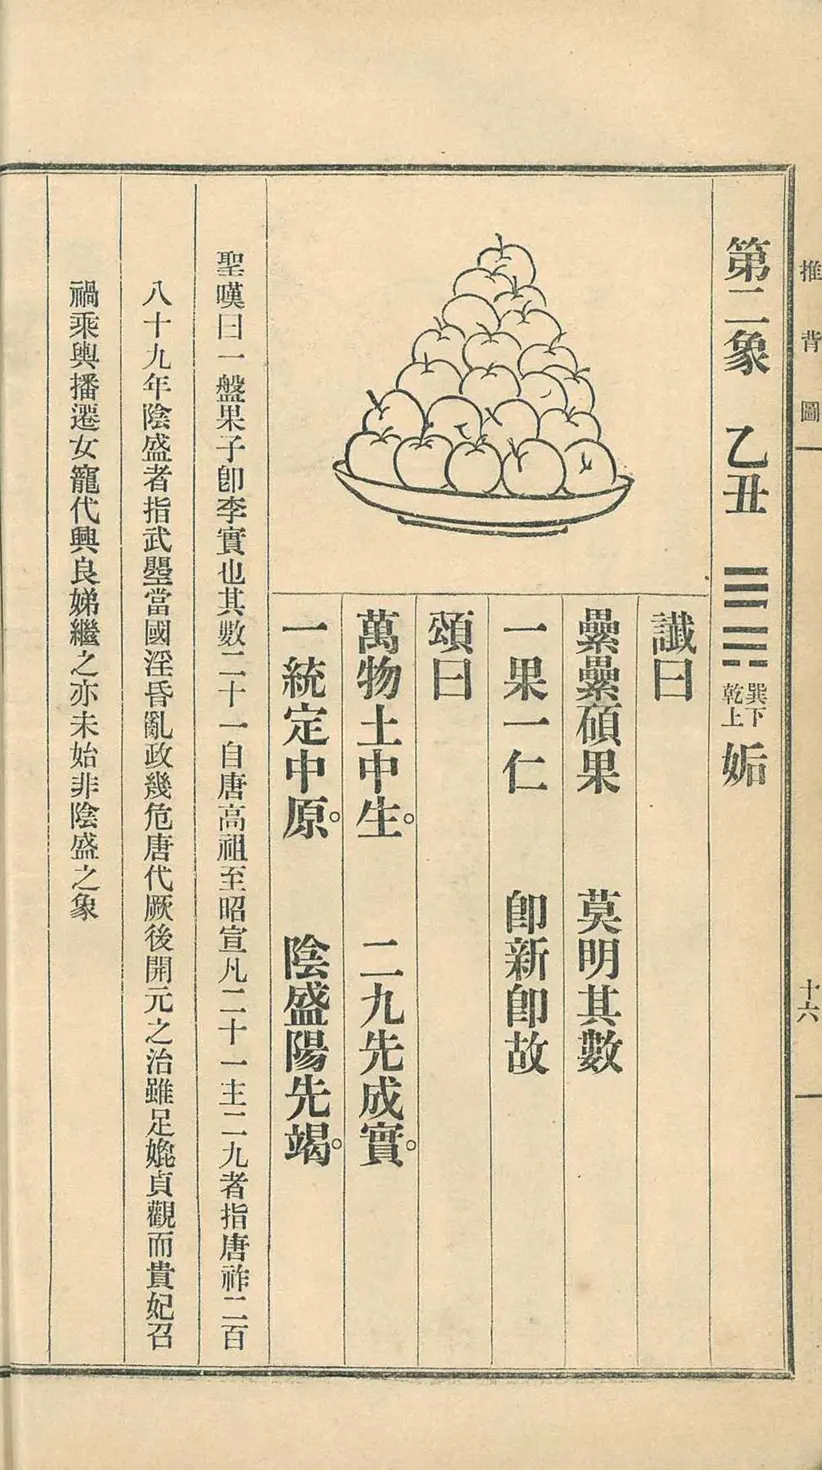 推背圖
十六
第二象 乙丑 巽下乾上 姤
讖曰
纍纍碩果 莫明其數
一果一仁 卽新卽故
頌曰
萬物土中生。 二九先成實。
一統定中原。 陰盛陽先竭。
聖嘆曰一盤果子卽李實也其數二十一自唐高祖至昭宣凡二十一主二九者指唐祚二百
八十九年陰盛者指武曌當國淫昏亂政幾危唐代厥後開元之治雖足媲貞觀而貴妃召
禍乘輿播遷女寵代興良娣繼之亦未始非陰盛之象